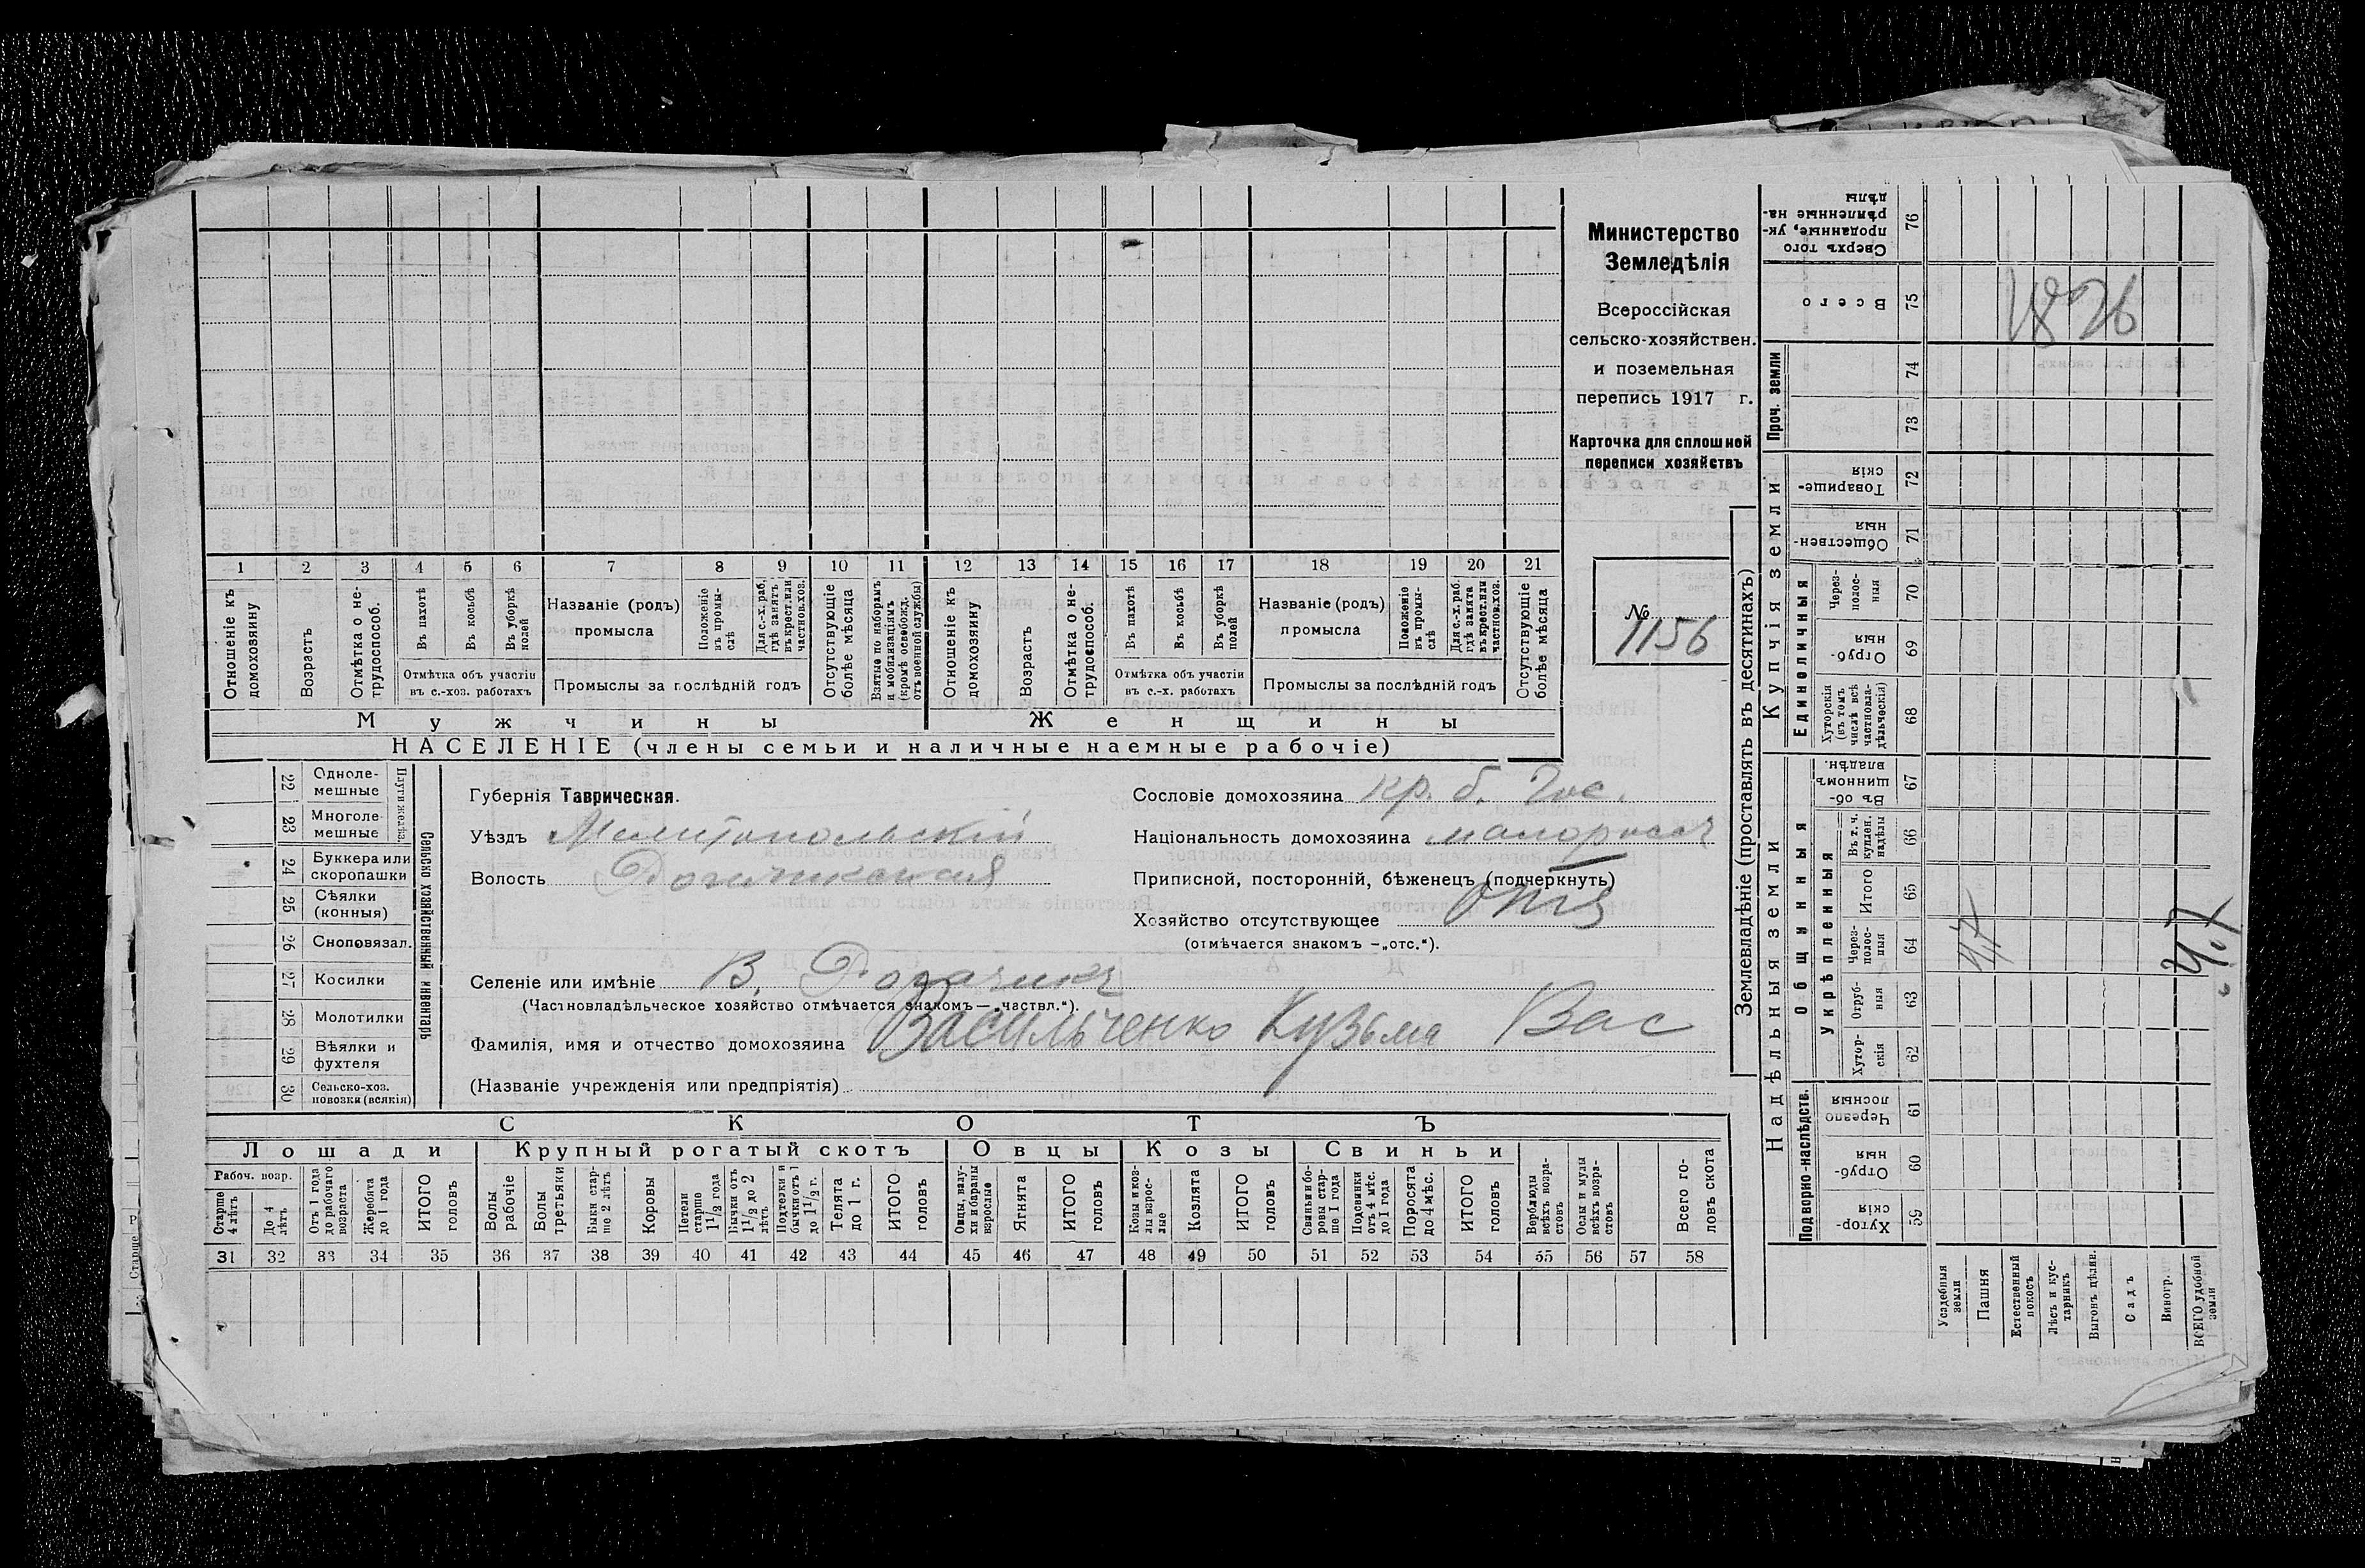 1 2 3 4 5 6 7 8 9 10 11 12 13 14 15 16 17 18 19 20 21
Отношеніе къ домохозяину
Возрастъ
Отмѣтка о не-
трудоспособ.
Въ пахотѣ
Въ косьбѣ
Въ уборкѣ
полей
Отмѣтка объ участіи
въ с.-хоз. работахъ
Названіе (родъ)
промысла
Положеніе
въ промы-
слѣ
Для с.-х. раб.
гдѣ занятъ
въ крест. или
частнов. хоз.
Промыслы за послѣдній годъ
Отсутствующіе
болѣе мѣсяца
Взятые по наборамъ
и мобилизаціямъ
(кромѣ освобожд.
отъ военной службы)
Отношеніе къ
домохозяину
Возрастъ
Отмѣтка о не-
трудоспособ.
Въ пахотѣ
Въ косьбѣ
Въ уборкѣ
полей
Отмѣтка объ участіи
въ с.-х. работахъ
Названіе (родъ)
промысла
Положеніе
въ промы-
слѣ
Для с.-х. раб.
гдѣ занята
въ крест. или
частнов. хоз.
Промыслы за послѣдній годъ
Отсутствующіе
болѣе мѣсяца
Мужчины Женщины
НАСЕЛЕНІЕ (члены семьи и наличные наемные рабочіе)
Министерство
Земледѣлія
Всероссійская
сельско-хозяйствен.
и поземельная
перепись 1917 г.
Карточка для сплошной
переписи хозяйствъ
№
1156
22 Одноле-
мешные
23 Многоле-
мешные
Плуги желѣз.
24 Буккера или
скоропашки
25 Сѣялки
(конныя)
26 Сноповязал.
27 Косилки
28 Молотилки
29 Вѣялки и
фухтеля
30 Сельско-хоз.
повозки (всякія)
Сельско хозяйственный инвентарь
Губернія Таврическая.
Уѣздъ Мелитопольскій
Волость
Селеніе или имѣніе В. Рогачикъ
(Частновладѣльческое хозяйство отмѣчается знакомъ — „частвл.“).
Фамилія, имя и отчество домохозяина Васильченко Кузьма Вас
(Названіе учрежденія или предпріятія)
Сословіе домохозяина кр. б. Гос.
Національность домохозяина малороссъ
Приписной, посторонній, бѣженецъ (подчеркнуть)
Хозяйство отсутствующее отс
(отмѣчается знакомъ — „отс.“).
СКОТЪ
Лошади Крупный рогатый скотъ Овцы Козы Свиньи
Рабоч. возр.
Старше
4 лѣтъ
До 4
лѣтъ
Отъ 1 года
до рабочаго
возраста
Жеребята
до 1 года
ИТОГО
головъ
Волы
рабочіе
Волы
третьяки
Быки стар-
ше 2 лѣтъ
Коровы
Нетели
старше
1 1/2 года
Бычки отъ
1 1/2 до 2
лѣтъ
Подтелки и
бычки отъ 1
до 1 1/2 г.
Телята
до 1 г.
ИТОГО
головъ
Овцы, валу-
хи и бараны
взрослые
Ягнята
ИТОГО
головъ
Козы и коз-
лы взрос-
лые
Козлята
ИТОГО
головъ
Свиньи и бо-
ровы стар-
ше 1 года
Подсвинки
отъ 4 мѣс.
до 1 года
Поросята
до 4 мѣс.
ИТОГО
головъ
Верблюды
всѣхъ возра-
стовъ
Ослы и мулы
всѣхъ возра-
стовъ
Всего го-
ловъ скота
31 32 33 34 35 36 37 38 39 40 41 42 43 44 45 46 47 48 49 50 51 52 53 54 55 56 57 58
Землевладѣніе (проставлять въ десятинахъ)
Купчія земли
Надѣльныя земли
Сверхъ того
проданные, ук-
рѣпленные на-
дѣлы
76
Всего
75
Проч. земли
74
73
Товарище-
скія
72
Обществен-
ныя
71
Единоличныя
Через-
полос-
ныя
70
Отруб-
ныя
69
Хуторскія
(въ томъ
числѣ всѣ
частновла-
дѣльческія)
68
Общинныя
Въ об-
щинномъ
владѣн.
67
Укрѣпленныя
Въ т. ч.
куплен.
надѣлы
66
Итого
65
Через-
полос-
ныя
64
Отруб-
ныя
63
Хутор-
скія
62
Подворно-наслѣдств.
Черезпо
лосныя
61
Отруб-
ныя
60
Хутор-
скія
59
4,7
4,7
Усадебныя
земли
Пашня
Естественный
покосъ
Лѣсъ и кус-
тарникъ
Выгонъ, цѣлин.
Садъ
Виногр.
ВСЕГО удобной
земли